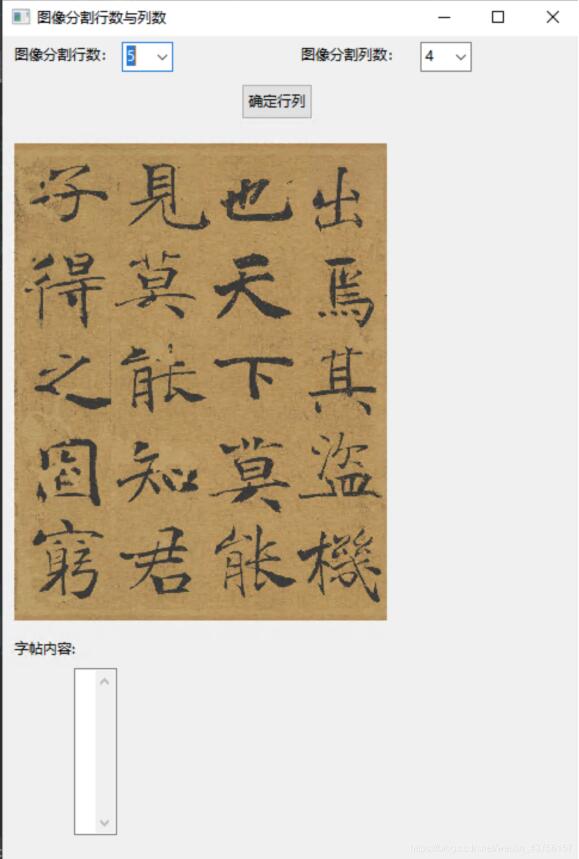 图像分割行数与列数
图像分割行数： 5
图像分割列数： 4
确定行列
出焉其盜機
也天下莫能
見莫能知君
子得之固窮
字帖内容: